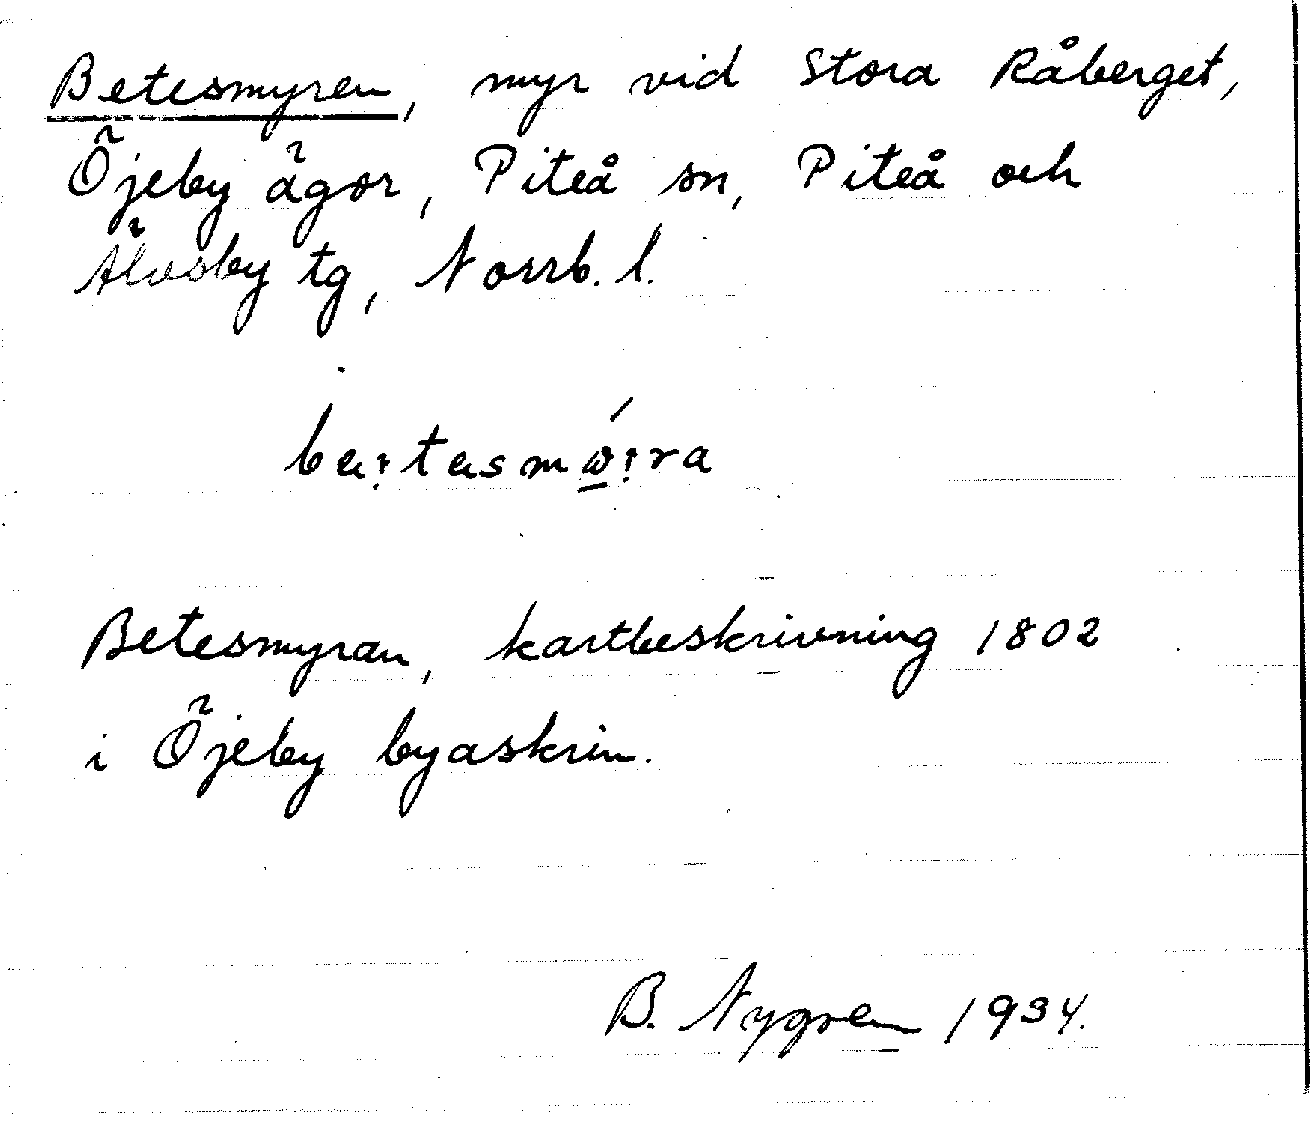 Betesmyren, myr vid Stora Råberget,
Öjeby ägor, Piteå sn, Piteå och
Älvsby tg, Norrb. l.
Betesmyran, kartbeskrivning 1802
i Öjeby byaskrin.
B. Nygren 1934.